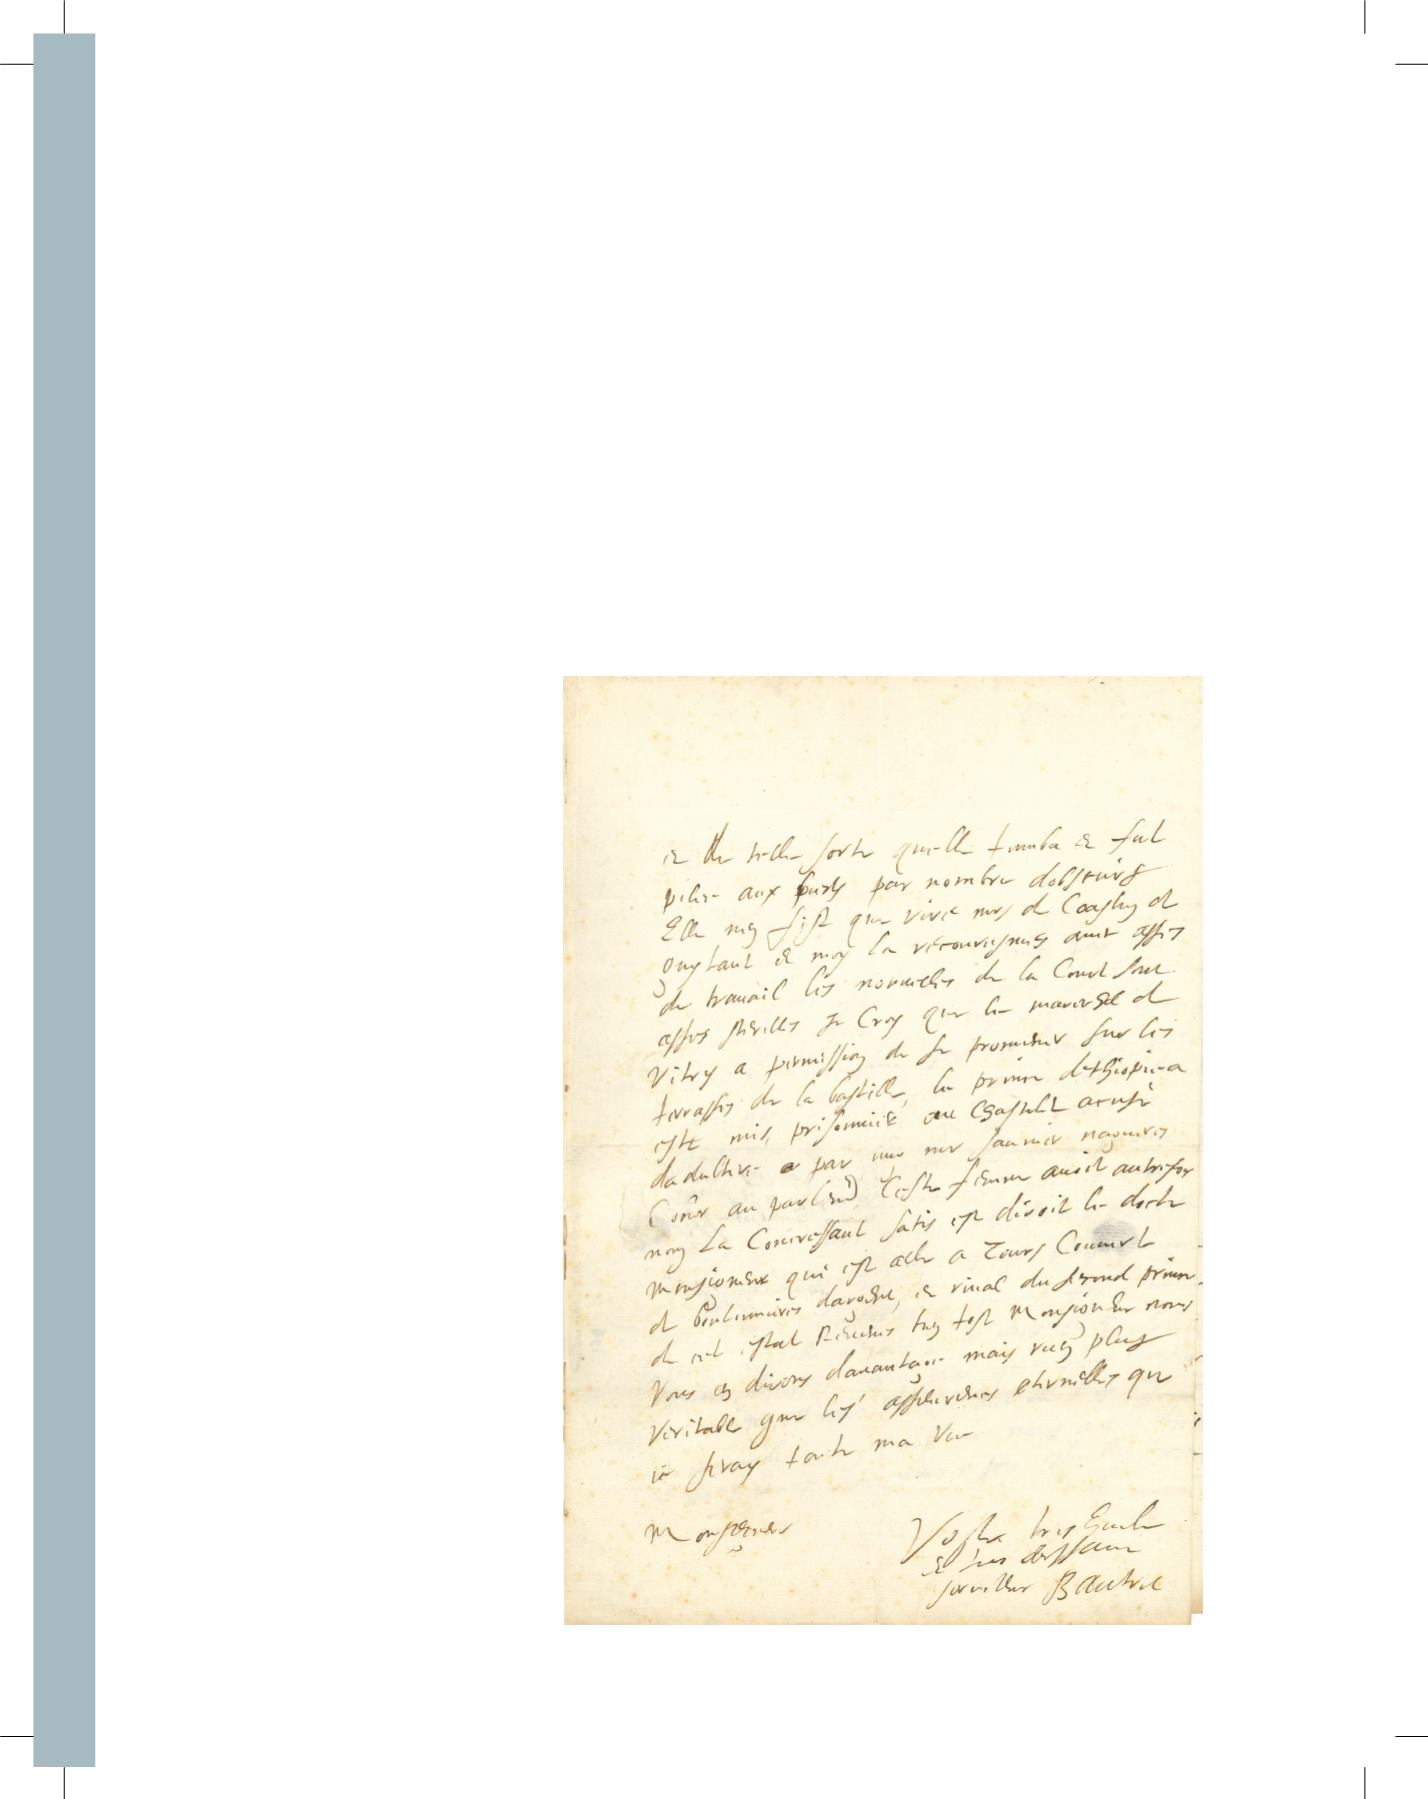 et de telle sorte quelle tumba et fut
pillee aux par nombre
Elle ne fist que vivre mrs de Coaslin et
et moy la recouvrismes avec asses
de travail les nouvelles de la Court sont
asses steriles Je Croy que le mareschal de
Vitry a permission de se promener sur les
terrasses de la bastille, le prince dethiopie a
este mis prisonnier au Chastelet acusé
dadultere par un mr saunier nagueres
Coner au parlemt, Ceste femme avoit autrefois
nom La Concressaut satis est diroit le docte
monsigneur qui est alle a Tours Couvert
de et rival du second prince
de cet estat Revenes tres tost Monsigneur nous
vous en dirons davantage mais rien plus
veritable que les asseurences eternelles que
ie seray toute ma vie
Monsigneur
Vostre tres humble
et tres
serviteur Bautru